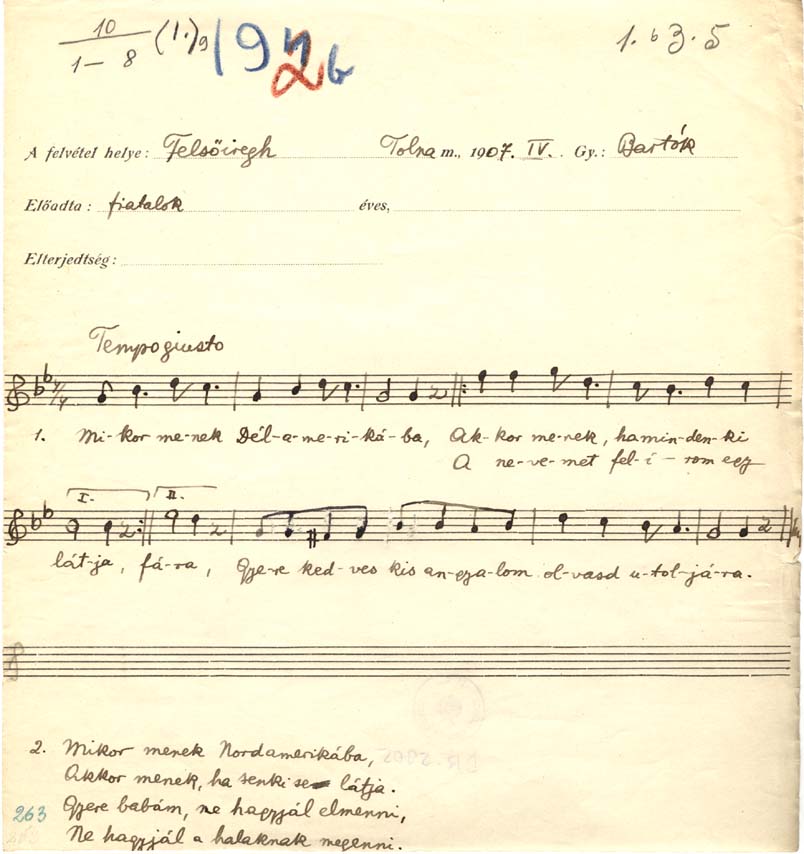 10
1– 8 (1.)9
1926
1. b3. 5
A felvétel helye: Felsőiregh Tolna m., 1907. IV. Gy.: Bartók
Előadta: fiatalok éves,
Elterjedtség:
Tempo giusto
1. Mi-kor me-nek Dél-a-me-ri-ká-ba, Ak-kor me-nek, ha min-den-ki
A ne-ve-met fel-í-rom egy
I. II.
lát-ja, fá-ra, Gye-re ked-ves kis an-gya-lom ol-vasd u-tol-já-ra.
2. Mikor menek Nordamerikába,
Akkor menek, ha senki se látja.
263 Gyere babám, ne hagyjál elmenni,
Ne hagyjál a halaknak megenni.